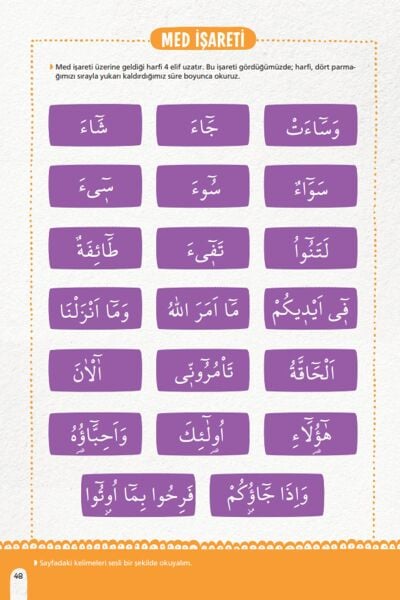 MED İŞARETİ
Med işareti üzerine geldiği harfi 4 elif uzatır. Bu işareti gördüğümüzde; harfi, dört parma-
ğımızı sırayla yukarı kaldırdığımız süre boyunca okuruz.
وَسَٓاءَتْ جَٓاءَ شَٓاءَ
سَوَٓاءٌ سُٓوءَ سٖٓيءَ
لَتَنُٓواُ تَفٖٓيءَ طَٓائِفَةٌ
فٖٓي اَيْدٖيكُمْ مَٓا اَمَرَ اللّٰهُ وَمَٓا اَنْزَلْنَا
اَلْحَٓاقَّةُ تَأْمُرُٓونّٖي آٰلْـٰٔنَ
هٰٓؤُ۬لَٓاءِ اُو۬لٰٓئِكَ وَاَحِبَّٓاؤُ۬هُ
وَاِذَا جَٓاؤُ۫كُمْ فَرِحُوا بِمَٓا اُو۫تُٓوا
Sayfadaki kelimeleri sesli bir şekilde okuyalım.
48